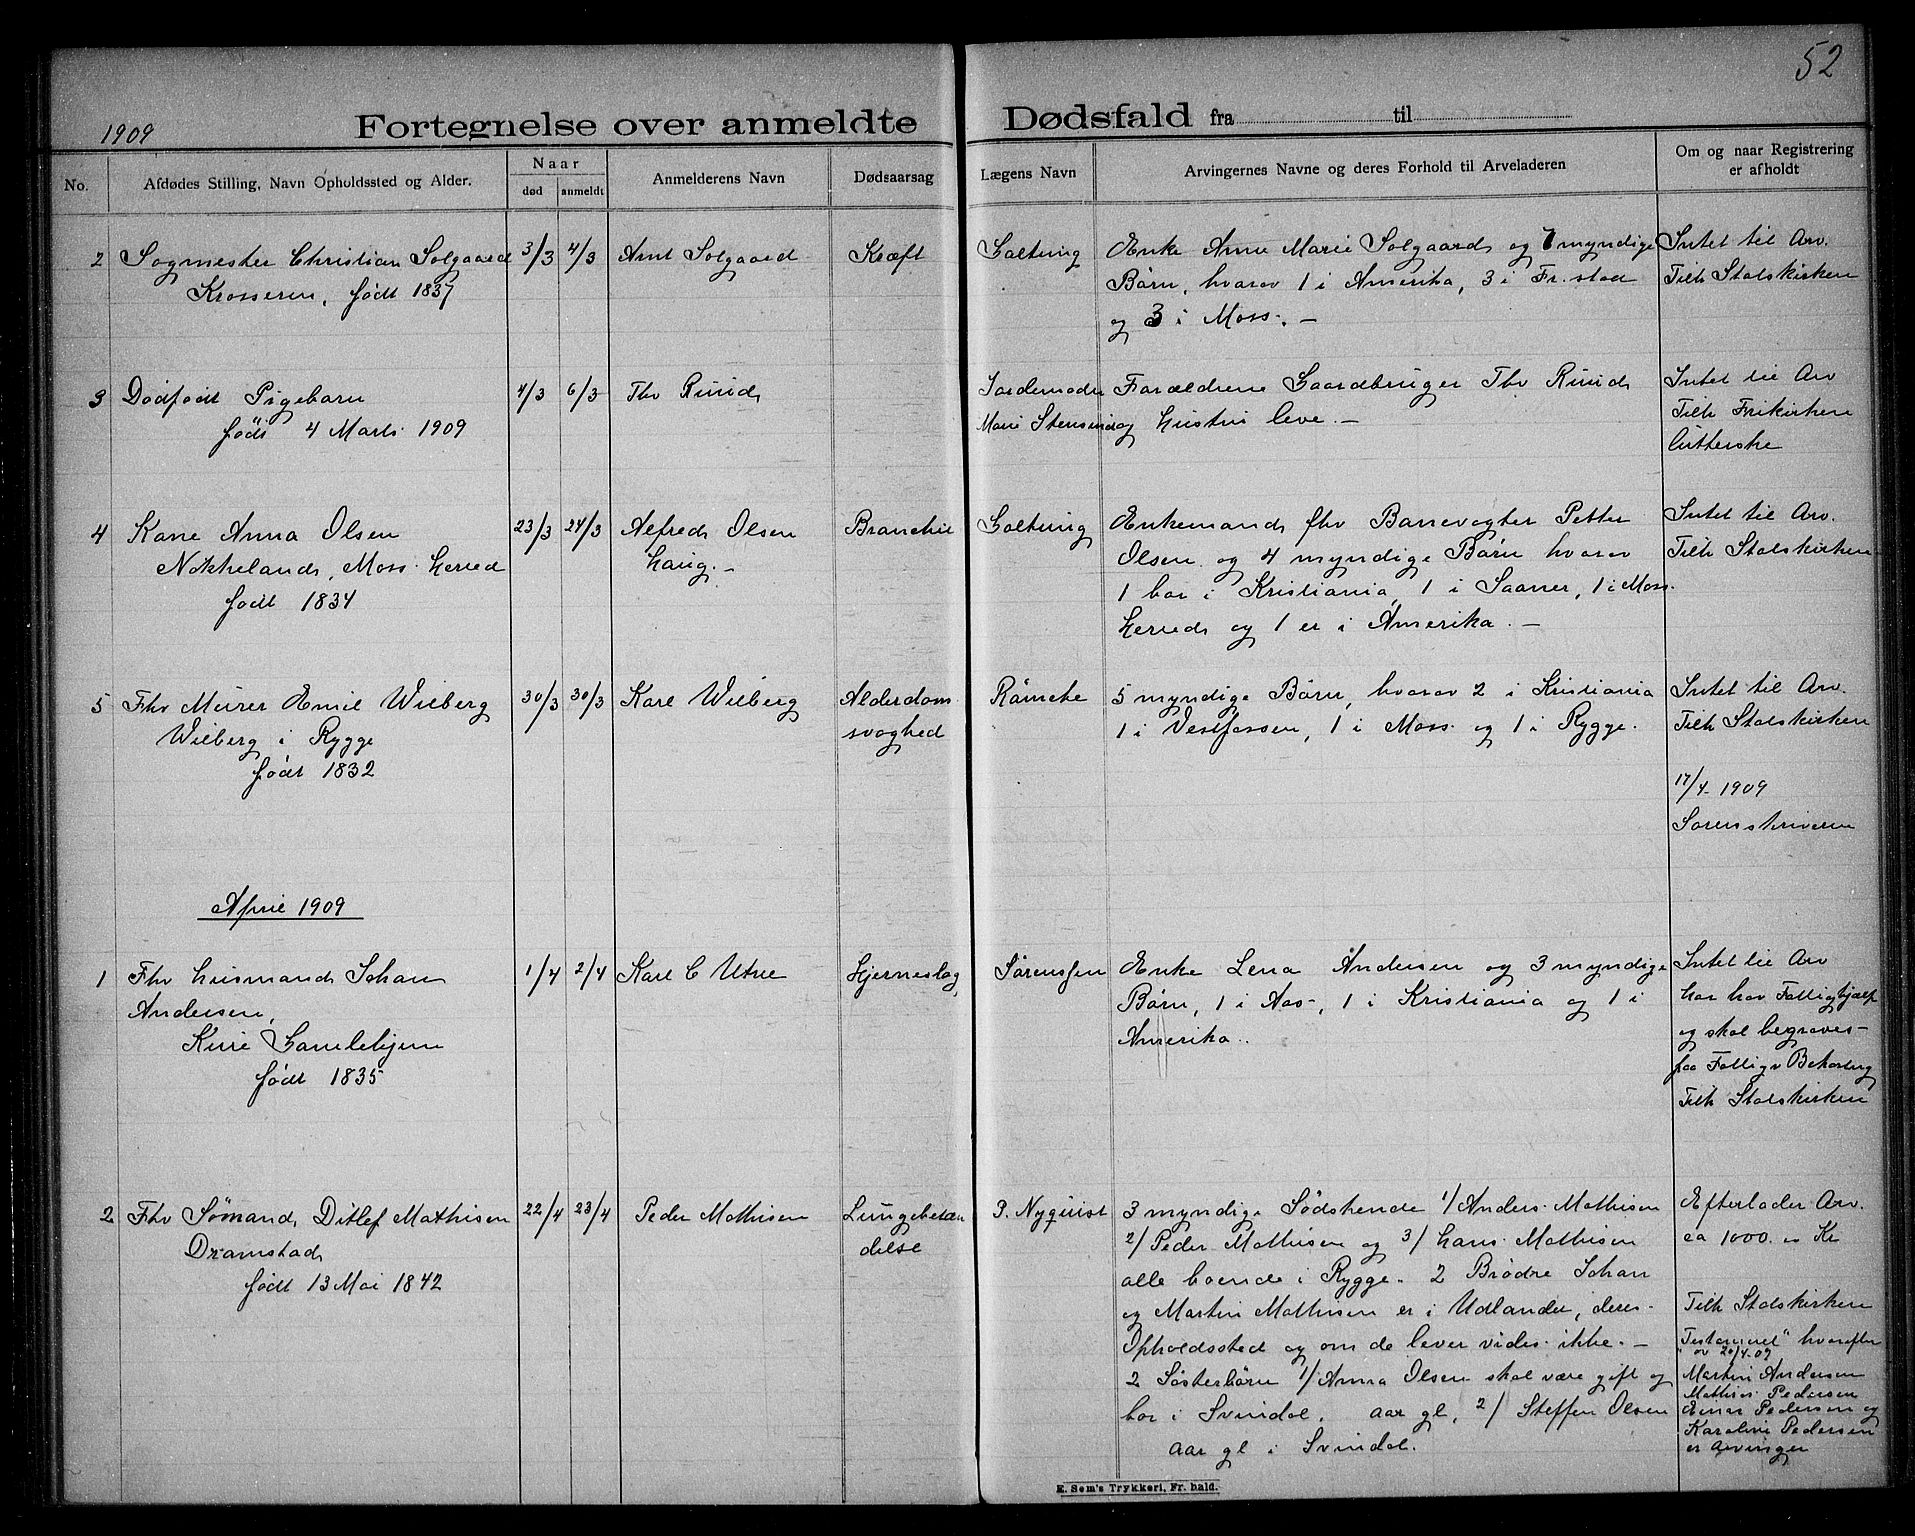 52
1909 Fortegnelse over anmeldte Dødsfald fra til
No. Afdødes Stilling, Navn Opholdssted og Alder. Naar død anmeldt Anmelderens Navn Dødsaarsag Lægens Navn Arvingernes Navne og deres Forhold til Arveladeren Om og naar Registrering er afholdt
2 Sogmester Christian Solgaard 3/3 4/3 Arnt Solgaard Kræft Galtung Enke Anne Marie Solgaard og 7 myndige Intet til Arv.
Krosseren, født 1837 Børn, hvorav 1 i Amerika, 3 i Fr.stad Tilh Statskirken
og 3 i Moss. —
3 Dødfødt Pigebarn 4/3 6/3 Thv Ruud Jordemoder Forældrene Gaardbruger Thv Ruud Intet til Arv
født 4 Marts 1909 Marie og Hustru leve. — Tilh Frikirken
Lutherske
4 Kone Anna Olsen 23/3 24/3 Alfred Olsen Bronchit Galtung Enkemand fhv Banevogter Petter Intet til Arv.
Nokkeland, Moss Herred Haug. — Olsen og 4 myndige Børn hvorav Tilh Statskirken
født 1834 1 bor i Kristiania, 1 i Saaner, 1 i Moss
Herred og 1 er i Amerika. —
5 Fhv Murer Emil Wilberg 30/3 30/3 Karl Wilberg Alderdoms Rømcke 5 myndige Børn, hvorav 2 i Kristiania Intet til Arv.
Wilberg i Rygge svaghed 1 i Vestfossen, 1 i Moss og 1 i Rygge. Tilh Statskirken
født 1832
17/4 1909
Sorenskriveren
April 1909
1 Fhv Husmand Johan 1/4 2/4 Karl C Utne Hjerneslag Sørenssen Enke Lena Andersen og 3 myndige Intet til Arv
Andersen, Børn, 1 i Aas, 1 i Kristiania og 1 i har hav Fattighjælp
Kure Gamlehjem Amerika. og skal begraves
født 1835 paa Fattigv Bekostng
Tilh Statskirken
2 Fhv Sømand Ditlef Mathisen 22/4 23/4 Peder Mathisen Lungebetæn P. Nyquist 3 myndige Sødskende 1/ Anders Mathisen Efterlader Arv.
Dramstad delse 2/ Peder Mathisen og 3/ Hans Mathisen ca 1000 Kr
født 13 Mai 1842 alle boende i Rygge. 2 Brødre Johan
og Martin Mathisen er i Udlandet, deres Tilh Statskirken
Opholdssted og om de lever vides ikke. — Testament hvorefter
av 20/4-09
2 Søsterbørn 1/ Anna Olsen skal være gift og Martin Andersen
Mathis Pedersen
bor i Svindal. aar gl, 2/ Steffen Olsen Einar Pedersen og
Karoline Pedersen
aar gl i Svindal. er arvinger
E. Sem's Trykkeri, Fr.hald.